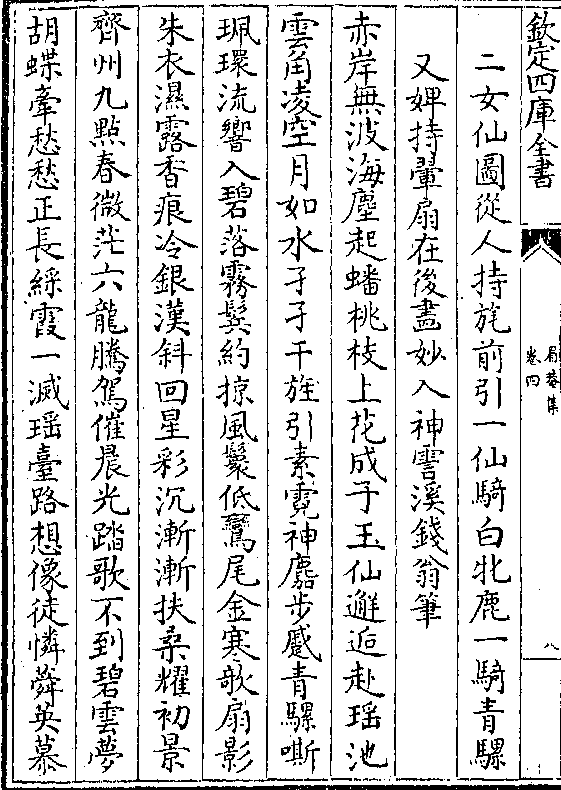 欽定四庫全書
扃菴集
卷四
八
二女仙圖從人持旄前引一仙騎白牝鹿一騎青騾
又婢持翬扇在後盡妙入神霅溪錢翁筆
赤岸無波海塵起蟠桃枝上花成子玉仙邂逅赴瑶池
雲角凌空月如水孑孑干旌引素霓神麚步蹙青騾嘶
珮環流響入碧落霧鬓約掠風鬟低鸞尾金寒歌扇影
朱衣濕露香痕冷銀漢斜回星彩沉漸漸扶桑耀初景
齊州九點春微茫六龍騰駕催晨光踏歌不到碧雲夢
胡蝶牽愁愁正長綵霞一滅瑶臺路想像徒憐舜英慕